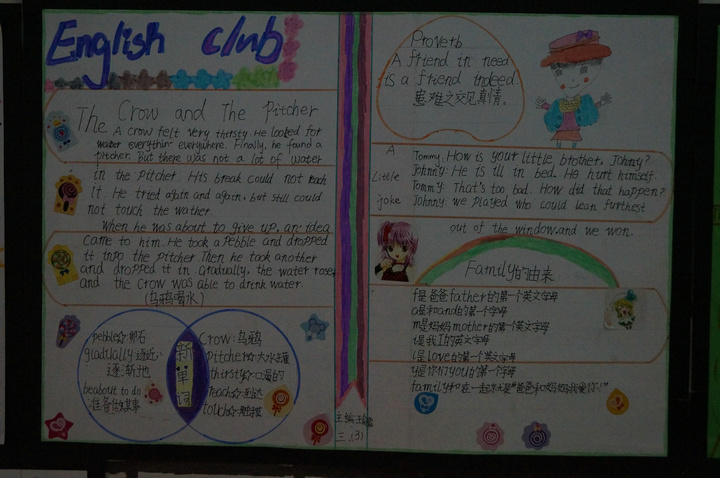 English club
The Crow and The Pitcher
A crow felt very thirsty. He looked for
water everythin everywhere. Finally, he found a
pitcher. But there was not a lot of water
in the pitcher. His break could not reach
it. He tried again and again, but still could
not touch the wather.
When he was about to give up, an idea
came to him. He took a pebble and dropped
it into the pitcher. Then he took another
and dropped it in. Gradually, the water rose,
and the crow was able to drink water.
(乌鸦喝水)
pebble 卵石
gradually 逐近
逐渐地
be about to do
准备做某事
新单词
Crow:乌鸦
Pitcher 大水罐
thirsty 口渴的
reach 到达
touch
主编
三.(3)
Proverb
A friend in need
is a friend indeed.
患难之交见真情。
A
Little
joke
Tommy: How is your little brother, Johnny?
Johnny: He is ill in bed. He hurt himself.
Tommy: That's too bad. How did that happen?
Johnny: we played who could lean furthest
out of the window.and we won.
Family的由来
f是爸爸father的第一个英文字母
a是和and的第一个字母
m是妈妈mother的第一个英文字母
i是我I的英文字母
l是love的第一个英文字母
y是你们you的第一个字母
family和在一起就是"爸爸和妈妈我爱你!"